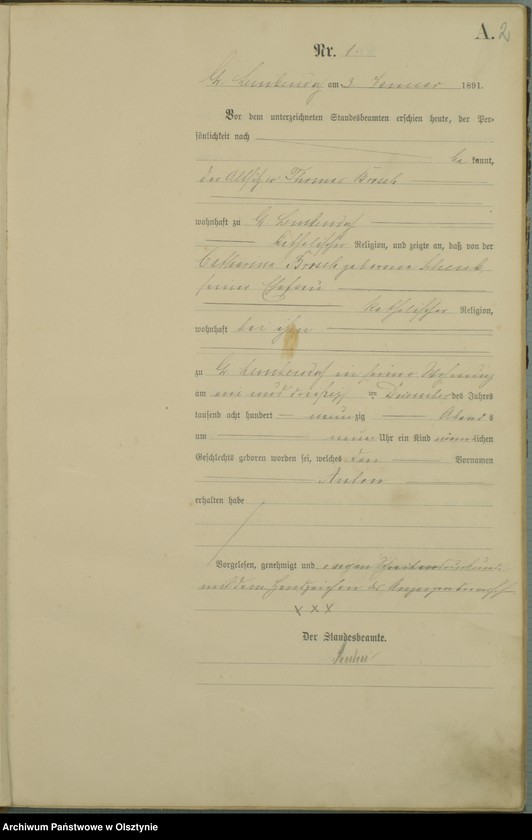 A. 2
Nr. 1
Gr. am 3. Januar 1891.
Vor dem unterzeichneten Standesbeamten erschien heute, der Per-
sönlichkeit nach
be kannt,
der Thomas
wohnhaft zu Gr.
katholischer Religion, und zeigte an, daß von der
Catharina geborene
seiner Ehefrau
katholischer Religion,
wohnhaft bei ihm
zu Gr. in seiner Wohnung
am ein und dreißig ten Dezember des Jahres
tausend acht hundert neunzig Abends
um neun Uhr ein Kind männlichen
Geschlechts geboren worden sei, welches den Vornamen
Anton
erhalten habe
Vorgelesen, genehmigt und wegen
mit dem Handzeichen des
x x x
Der Standesbeamte.
Archiwum Państwowe w Olsztynie